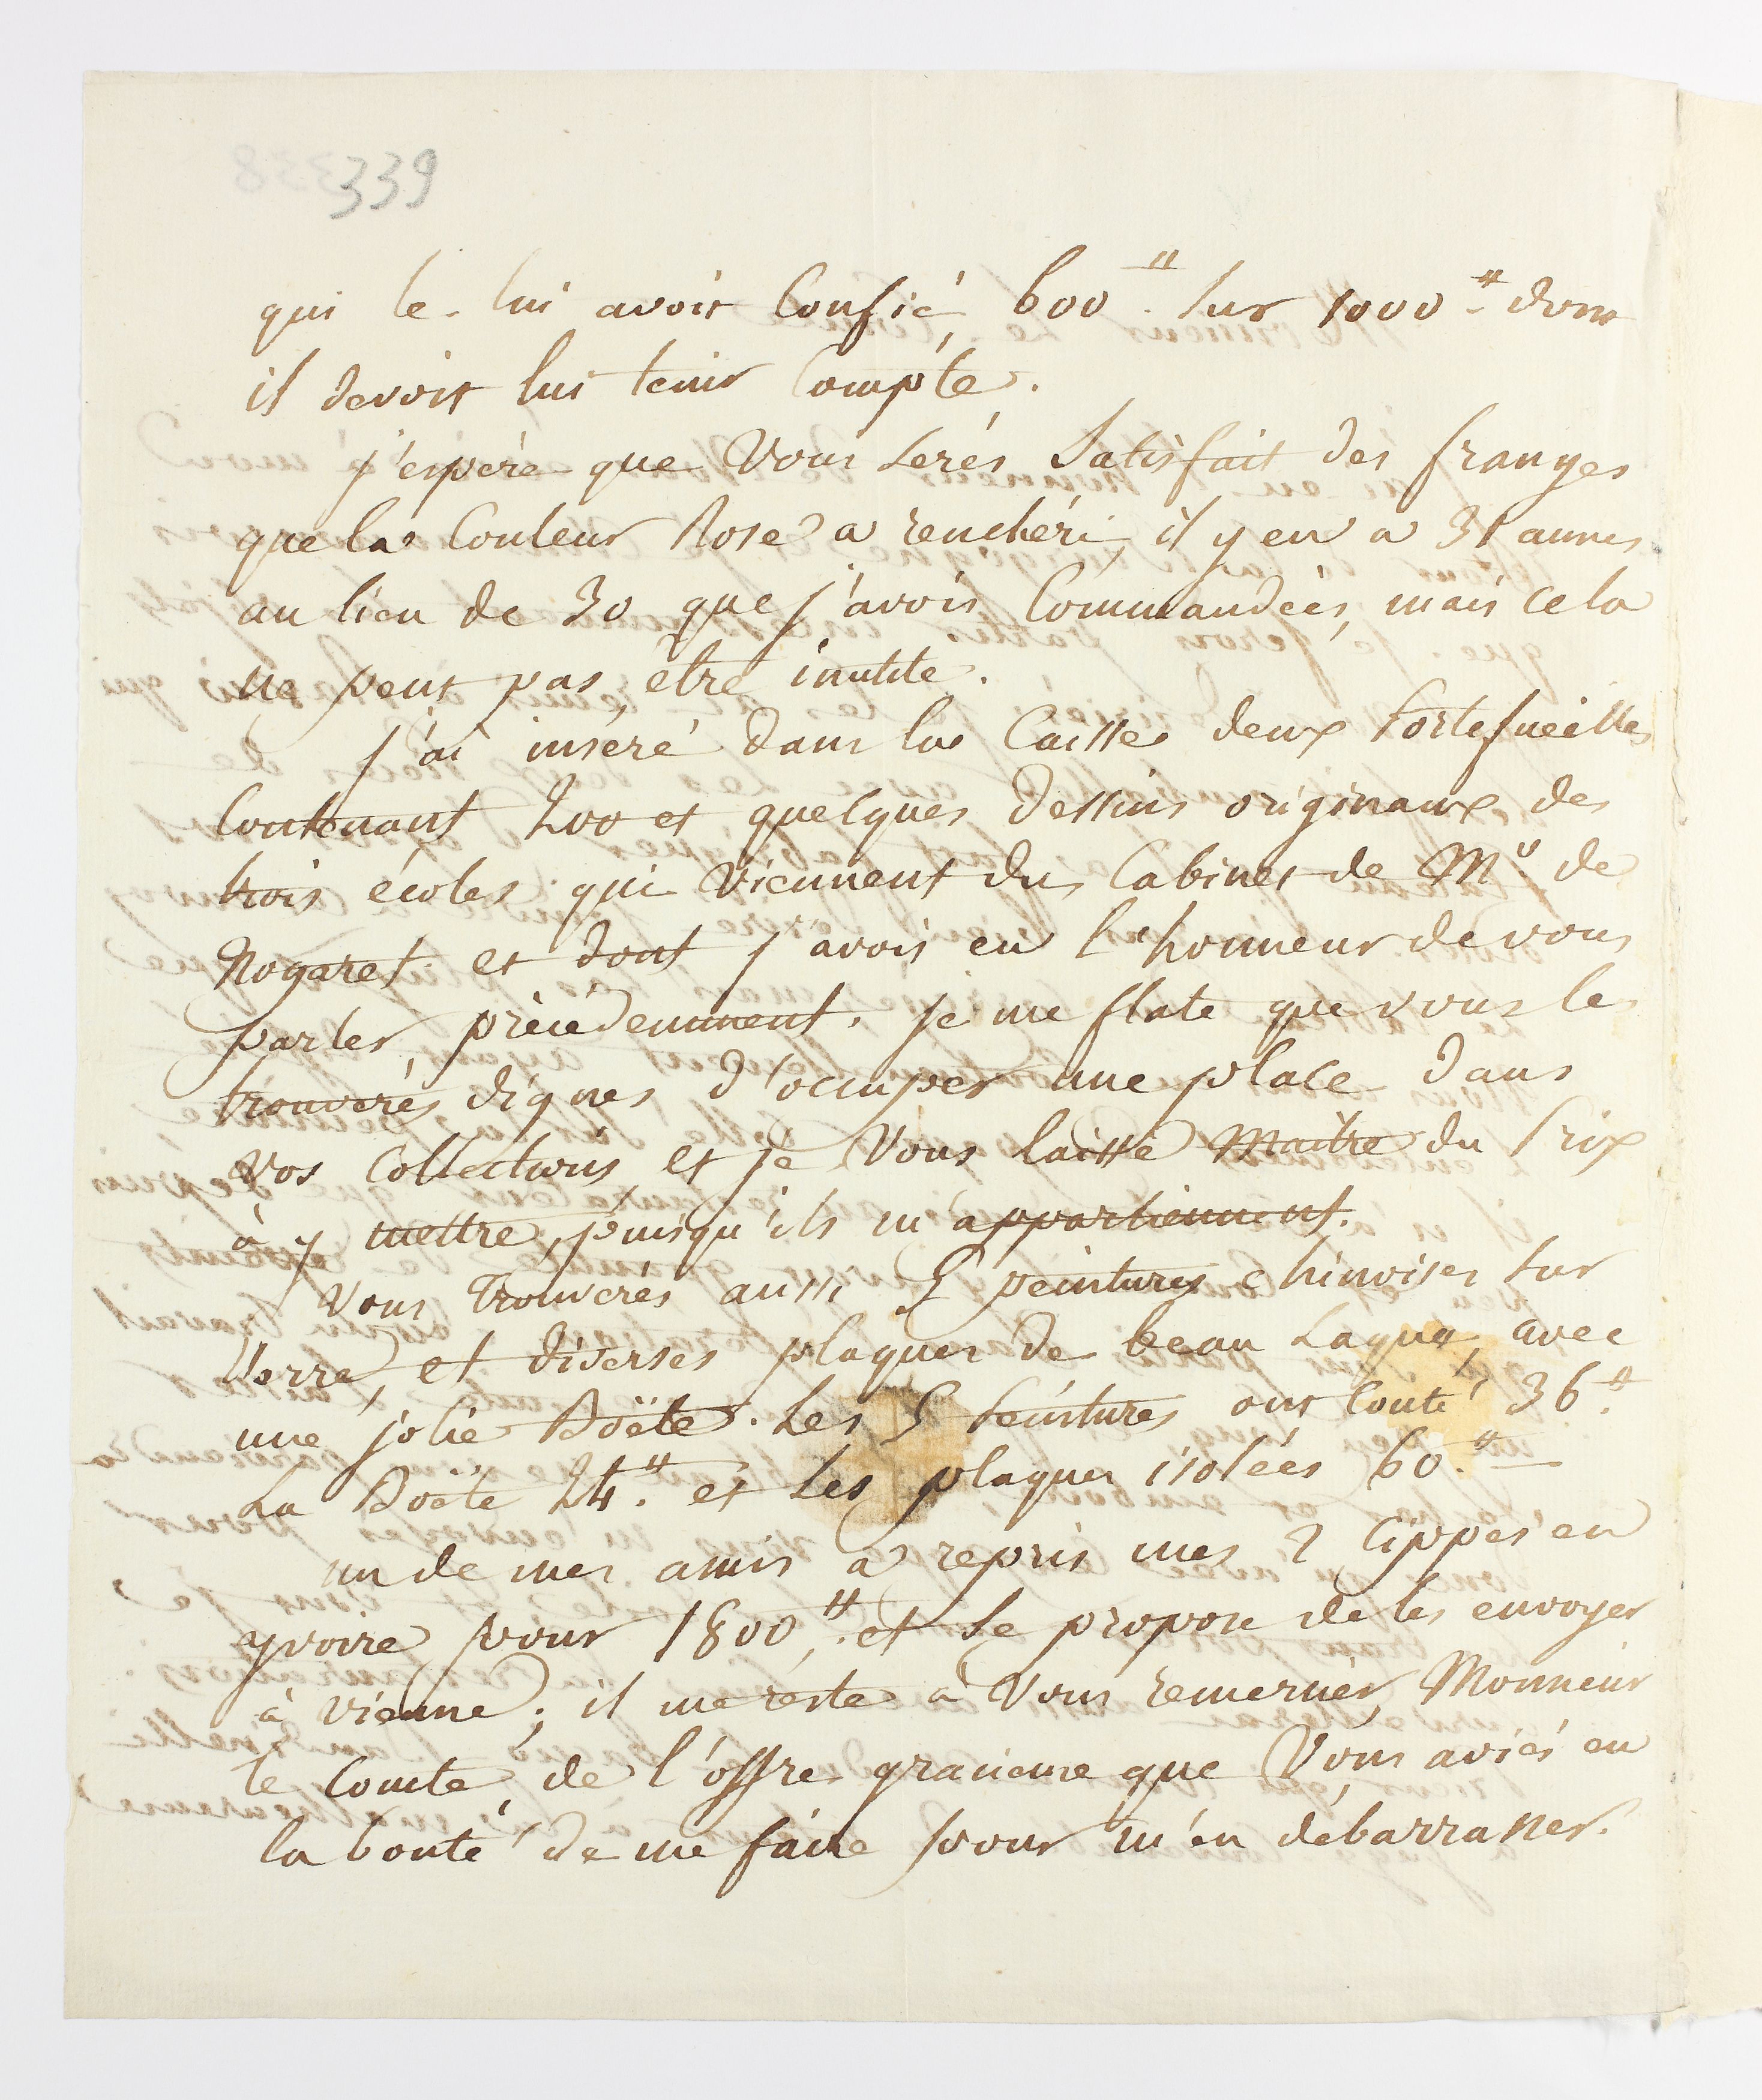 339
qui le lui avoit Confié, 600.ᵗᵗ sur 1000.ᵗᵗ dont
il devoit lui tenir Compte.
j'espère que Vous serés Satisfait des franges
que la Couleur Rose a renchéri, il y en a 31 aunes
au lieu de 30 que j'avois Commandées, mais cela
ne peut pas être inutile.
j'ai inseré dans la Caisse deux Portefueilles
Contenant 200 et quelques dessins originaux des
trois écoles qui Viennent du Cabinet de Mʳ de
Nogaret et dont j'avois eu l'honneur de vous
parler précédemment. je me flate que vous les
trouverés dignes d'occuper une place dans
vos Collections et je Vous laisse Maitre du Prix
à y mettre, puisqu'ils m'appartiennent.
Vous trouverés aussi 5 peintures chinoises sur
Verre, et diverses plaques de beau Laque, avec
une jolie Boëte. Les 5 Peintures ont Couté 36.ᵗᵗ
La Boëte 24.ᵗᵗ et Les plaques isolées 60.ᵗᵗ
un de mes amis a repris mes 2 Cippes en
yvoire pour 1800.ᵗᵗ et se propose de les envoyer
à vienne; il me reste à Vous remercier, Monsieur
le Comte, de l'offre gracieuse que Vous aviés eu
la bonté de me faire pour m'en débarrasser.